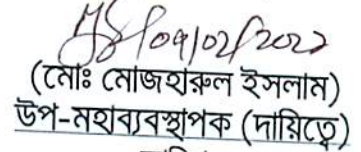 09/02/2022
(মোঃ মোজহারুল ইসলাম)
উপ-মহাব্যবস্থাপক (দায়িত্বে)